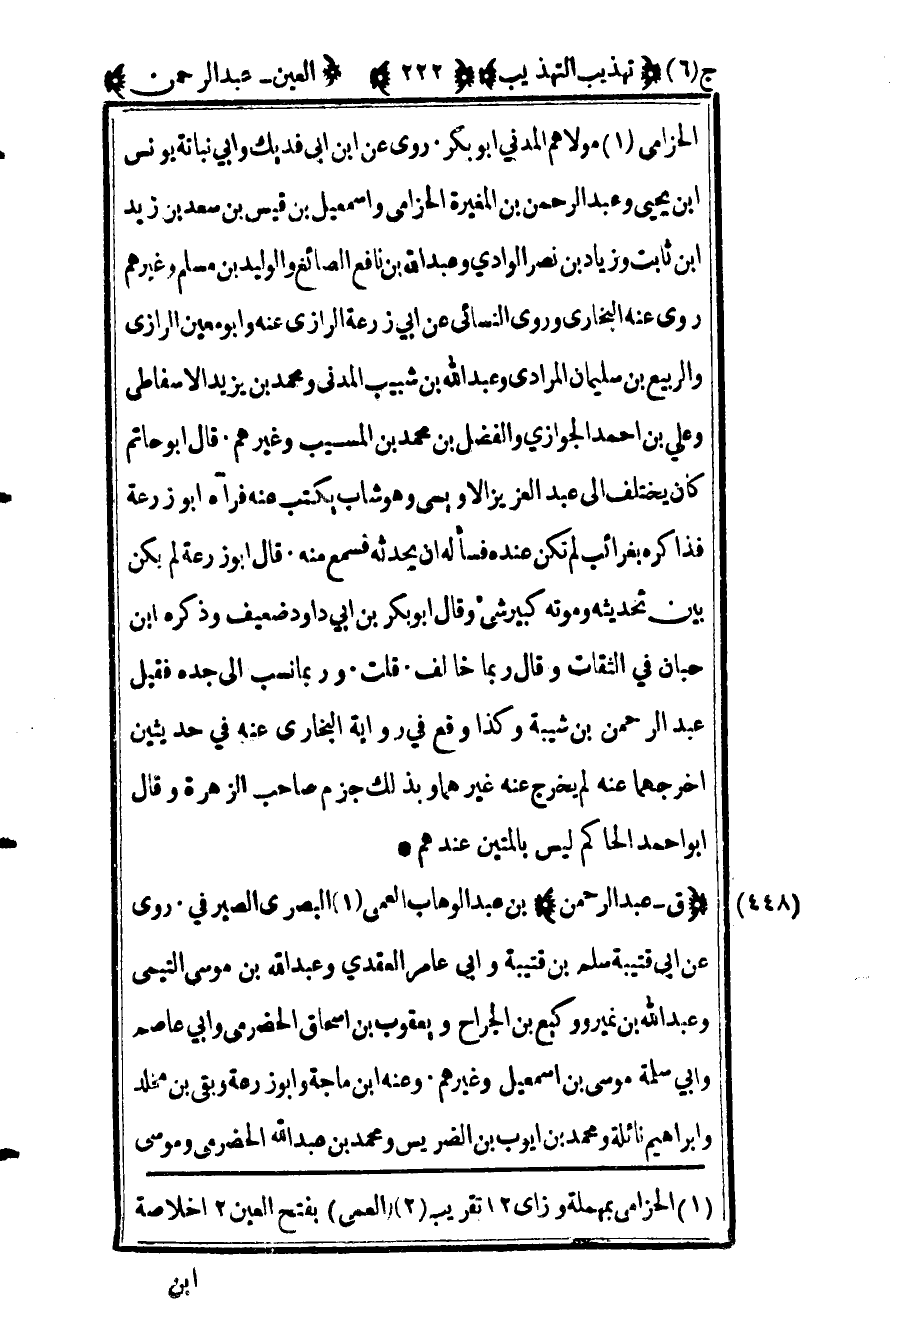 ج(٦) ﴿تهذيب التهذيب﴾ ﴿٢٢٢﴾ ﴿العين ـ عبدالرحمن﴾
الحزامى (١) مولاهم المدني ابوبكر · روى عن ابن ابى فديك وابي نباتة يونس
ابن يحيى وعبدالرحمن بن المغيرة الحزامى واسمعيل بن قيس بن سعد بن زيد
ابن ثابت وزياد بن نصر الوادي وعبدالله بن نافع الصائغ والوليد بن مسلم وغيرهم
روى عنه البخارى وروى النسائى عن ابي زرعة الرازى عنه وابو معين الرازى
والربيع بن سليمان المرادى وعبدالله بن شبيب المدنى ومحمد بن يزيد الاسفاطى
وعلي بن احمد الجوازي والفضل بن محمد بن المسيب وغيرهم · قال ابوحاتم
كان يختلف الى عبد العزيز الاويسى وهو شاب يكتب عنه فرآه ابو زرعة
فذاكره بغرائب لم تكن عنده فسأله ان يحدثه فسمع منه · قال ابوزرعة لم يكن
بين تحديثه وموته كبير شئ وقال ابوبكر بن ابي داود ضعيف وذكره ابن
حبان في الثقات وقال ربما خالف · قلت · وربما نسب الى جده فقيل
عبد الرحمن بن شيبة وكذا وقع في رواية البخارى عنه في حديثين
اخرجهما عنه لم يخرج عنه غيرهما وبذلك جزم صاحب الزهرة وقال
ابواحمد الحاكم ليس بالمتين عندهم ●
(٤٤٨) ﴿ق ـ عبدالرحمن﴾ بن عبدالوهاب العمى (١) البصرى الصيرفي · روى
عن ابي قتيبة سلم بن قتيبة وابي عامر العقدي وعبدالله بن موسى التيمى
وعبدالله بن نمير ووكيع بن الجراح ويعقوب بن اسحاق الحضرمى وابي عاصم
وابي سلمة موسى بن اسمعيل وغيرهم · وعنه ابن ماجة وابوزرعة وبقى بن مخلد
وابراهيم نائلة ومحمد بن ايوب بن الضريس ومحمد بن عبدالله الحضرمى وموسى
(١) الحزامى بمهملة وزاى ١٢ تقريب (٢) (العمى) بفتح العين ١٢ خلاصة
ابن